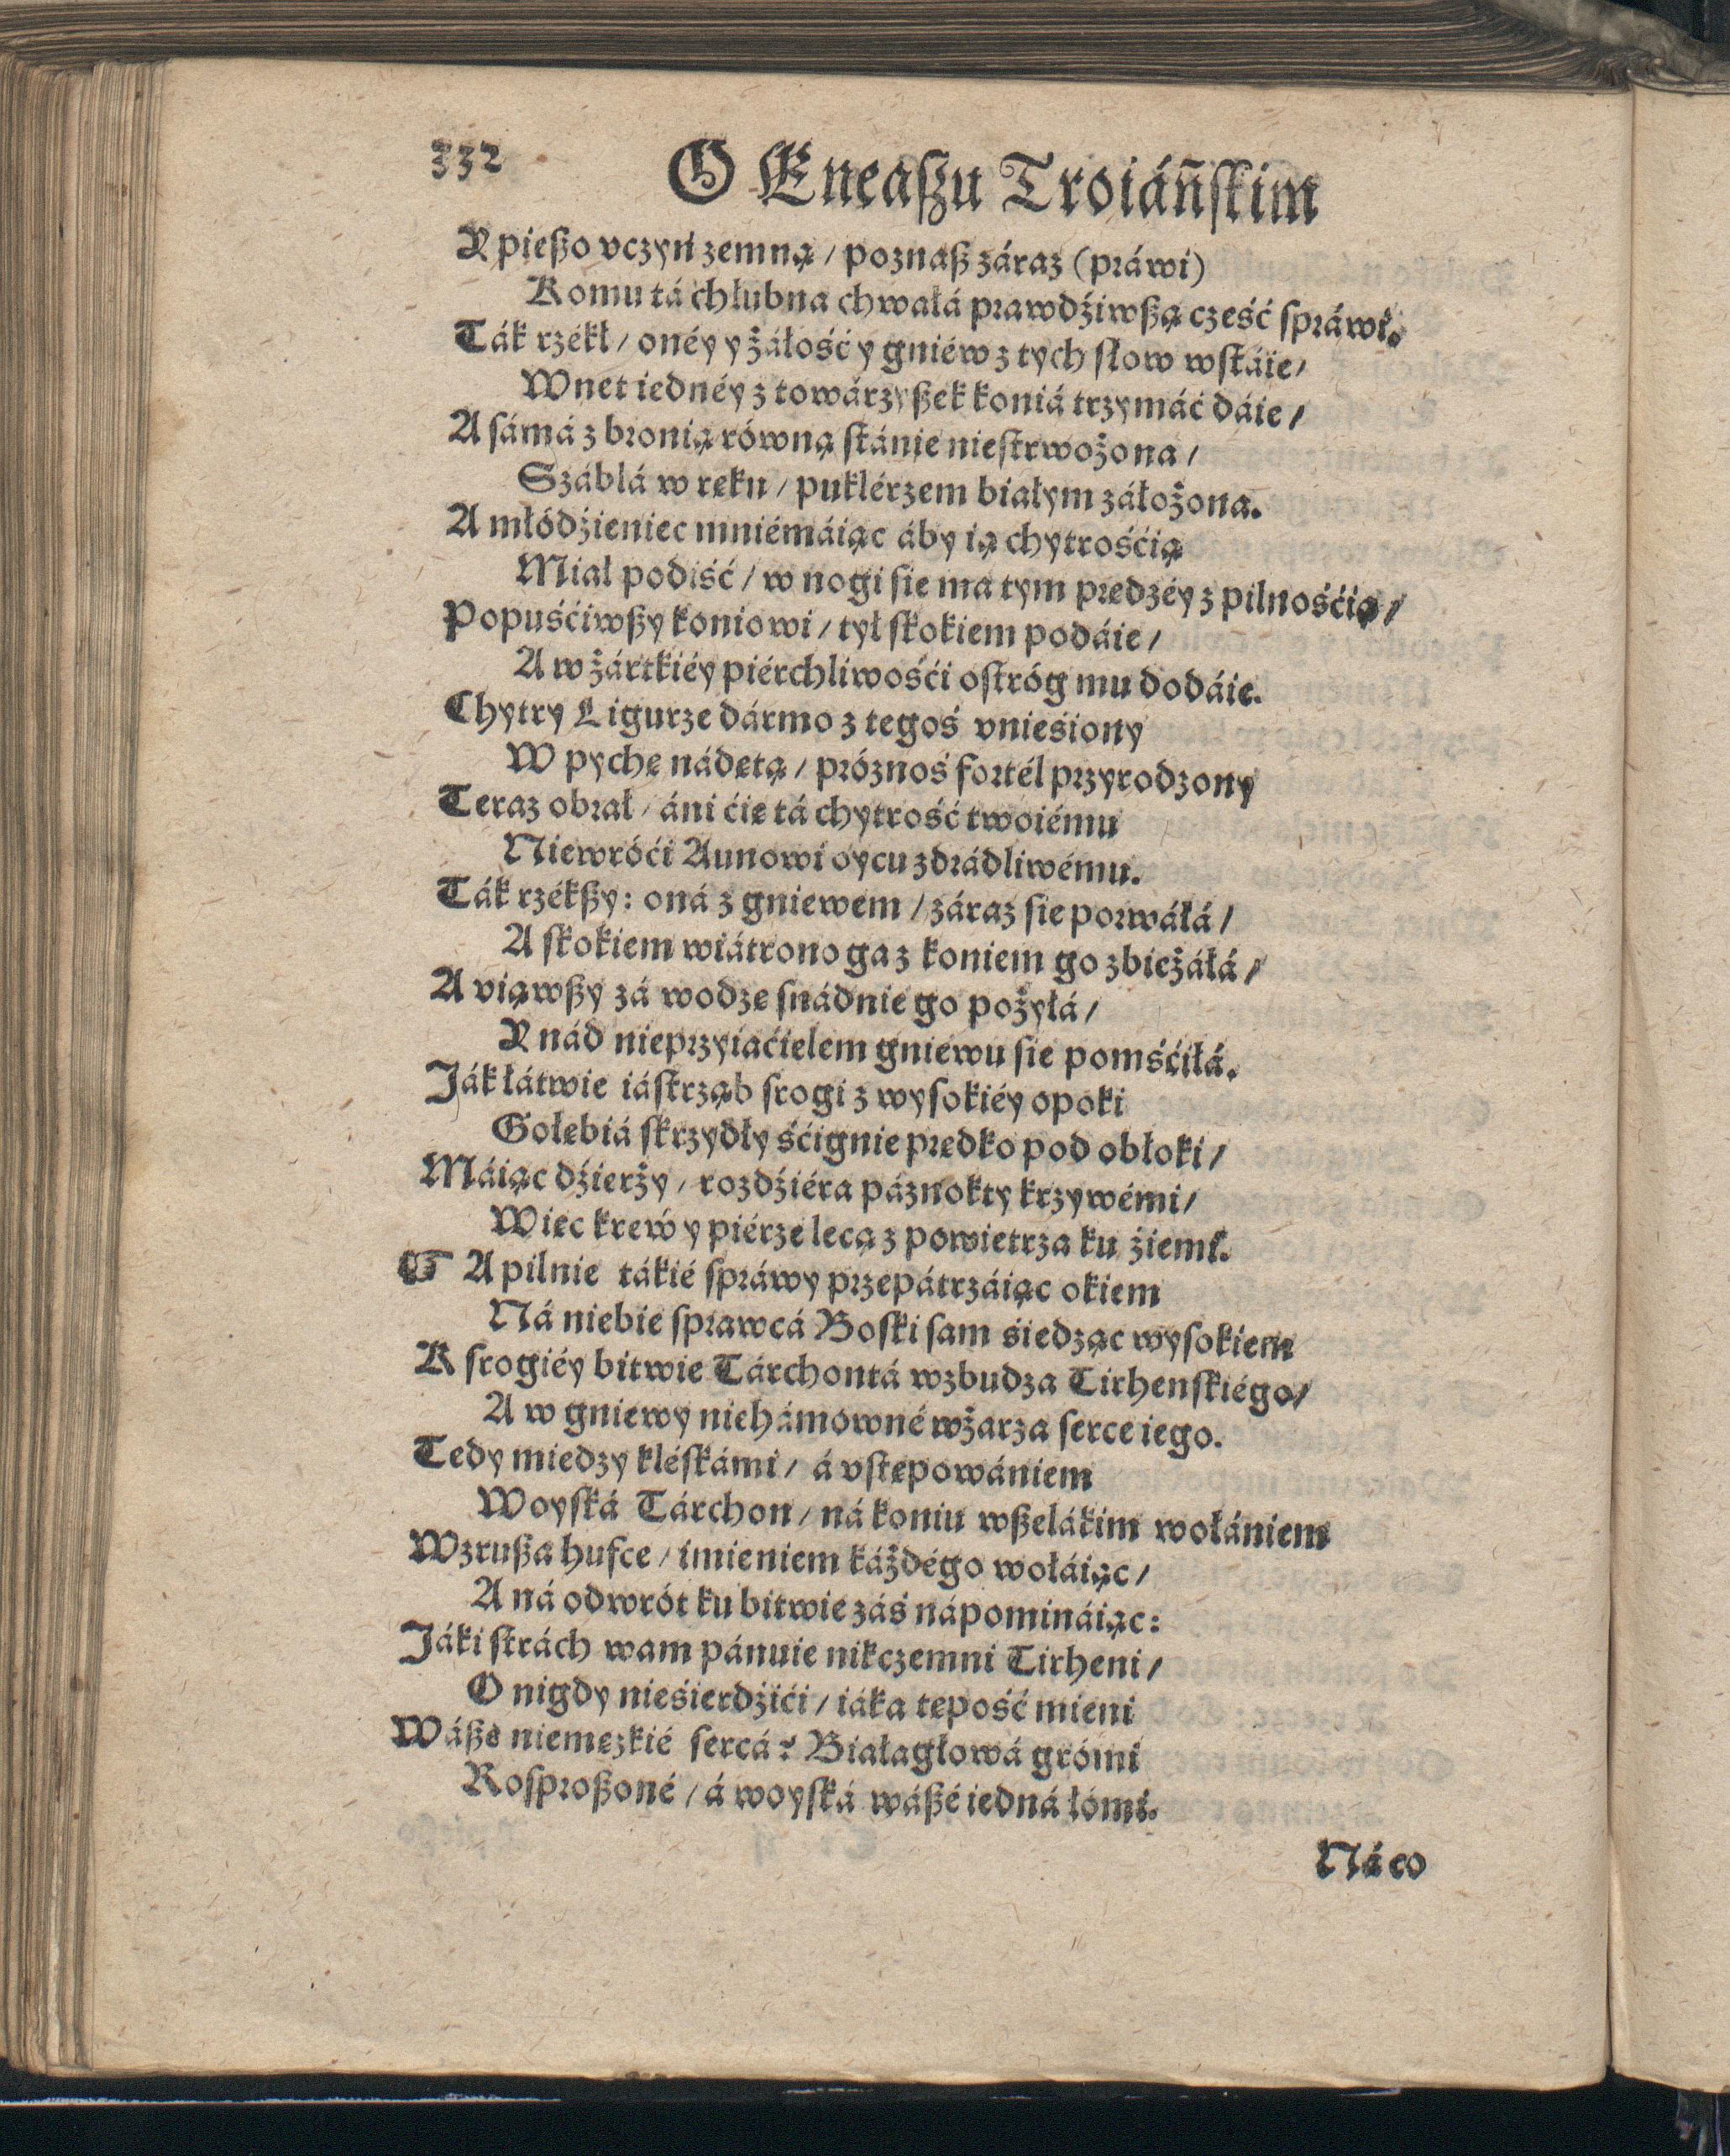 332 O Eneaſzu Troiáńſkim
Y pieſzo vczyń zemną / poznaſz záraz (práwi)
Komu tá chłubna chwałá prawdźiwſzą cześć ſpráwi.
Ták rzékł / onéy y żáłość y gniéw z tych ſłow wſtáie /
Wnet iednéy z towárzyſzek koniá trzymáć dáie /
A ſámá z bronią równą ſtánie nieſtrwożona /
Száblá w ręku / puklérzem białym záłożona.
A młódźieniec mniémáiąc áby ią chytrośćią
Miał podiść / w nogi ſie ma tym prędzéy z pilnośćią /
Popuśćiwſzy koniowi / tył ſkokiem podáie /
A w żártkiéy piérchliwośći oſtróg mu dodáie.
Chytry Ligurze dármo z tegoś vnieśiony
W pychę nádętą / próznoś fortél przyrodzony
Teraz obrał / áni ćię tá chytrość twoiému
Niewróći Aunowi oycu zdrádliwému.
Ták rzékſzy: oná z gniewem / záraz ſie porwáłá /
A ſkokiem wiátronoga z koniem go zbieżáłá /
A viąwſzy zá wodze ſnádnie go pożyłá /
Y nád nieprzyiaćielem gniewu ſie pomśćiłá.
Ják łátwie iáſtrząb ſrogi z wyſokiéy opoki
Gołębiá ſkrzydły śćignie prędko pod obłoki /
Máiąc dźierży / rozdźiéra páznokty krzywémi /
Więc krew y piérze lecą z powietrza ku źiemi.
¶ A pilnie tákié ſpráwy przepátrzáiąc okiem
Ná niebie ſprawcá Boſki ſam śiedząc wyſokiem
K ſrogiéy bitwie Tárchontá wzbudza Tirhenſkiégo /
A w gniewy niehámowné wżarza ſerce iego.
Tedy miedzy klęſkámi / á vſtępowániem
Woyſká Tárchon / ná koniu wſzelákim wołániem
Wzruſza hufce / imieniem káżdégo wołáiąc /
A ná odwrót ku bitwie záś nápomináiąc:
Jáki ſtrách wam pánuie nikczemni Tirheni /
O nigdy nieśierdźići / iáka tępość mieni
Wáſze niemęzkié ſercá? Białagłowá grómi
Roſproſzoné / á woyſká wáſzé iedná łómi.
Ná co